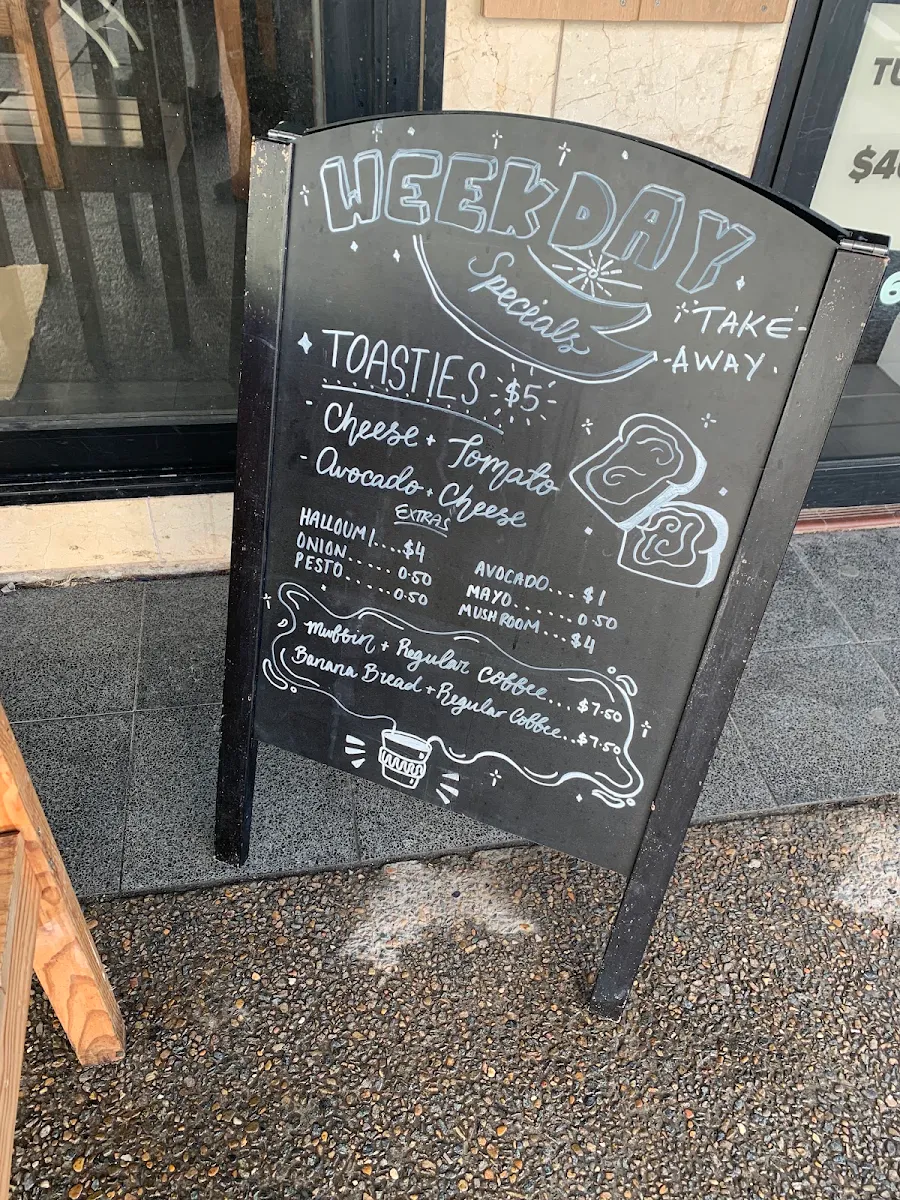 WEEKDAY
Specials
TAKE-
AWAY.
TOASTIES $5
- Cheese + Tomato
- Avocado + Cheese
EXTRAS
HALLOUMI....$4
ONION......0.50
PESTO......0.50
AVOCADO...$1
MAYO.......0.50
MUSHROOM...$4
Muffin + Regular Coffee....$7.50
Banana Bread + Regular Coffee..$7.50
TU
$40
6